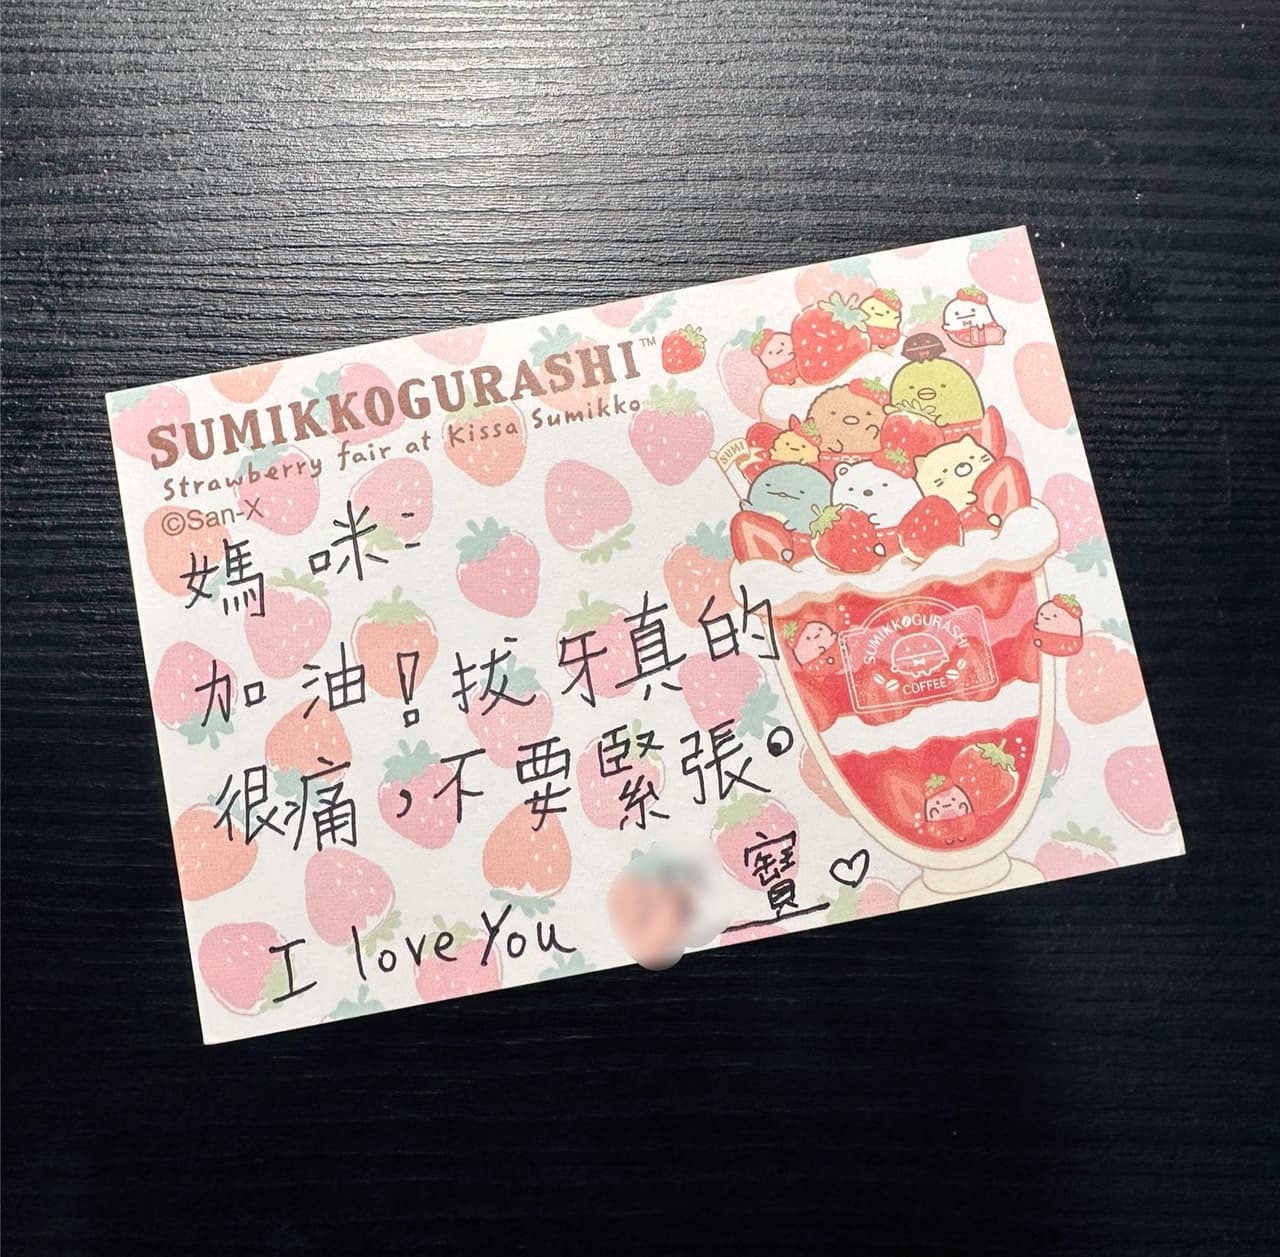 SUMIKKOGURASHI™
Strawberry fair at Kissa Sumikko
©San-X
媽咪：
加油！拔牙真的
很痛，不要緊張。
I love You 寶♡
SUMI
SUMIKKOGURASHI
COFFEE